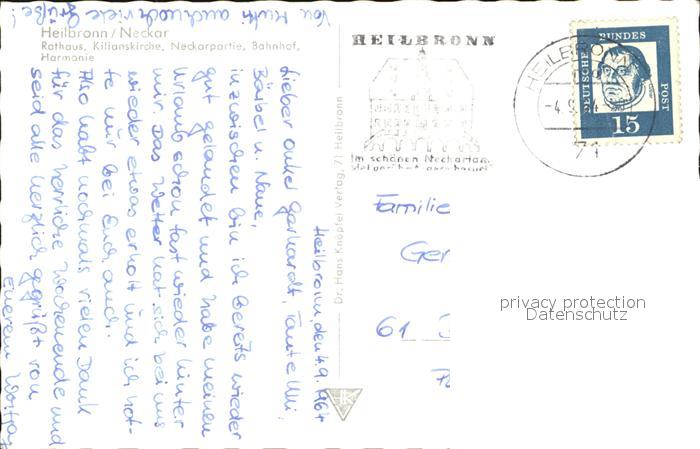 Von Mutti auch noch viele Grüße!
Heilbronn / Neckar
Rathaus, Kilianskirche, Neckarpartie, Bahnhof,
Harmonie
Heilbronn, den 4.9.1964
Lieber Onkel Gerhardt, Tante Elli,
Bärbel u. Nane,
inzwischen bin ich bereits wieder
gut gelandet und habe meinen
Urlaub schon fast wieder hinter
mir. Das Wetter hat sich bei uns
wieder etwas erholt und ich hof-
te mir bei Euch auch.
Also habt nochmals vielen Dank
für das herrliche Wochenende und
seid alle herzlich gegrüßt von
Eurem
Dr. Hans Knöpfel Verlag, 71 Heilbronn
HK
HEILBRONN
Im schönen Neckartal
viel gerühmt, gern besucht
HEILBRONN
-4.9.64
71
DEUTSCHE BUNDESPOST
15
Familie
Ger
61
privacy protection
Datenschutz